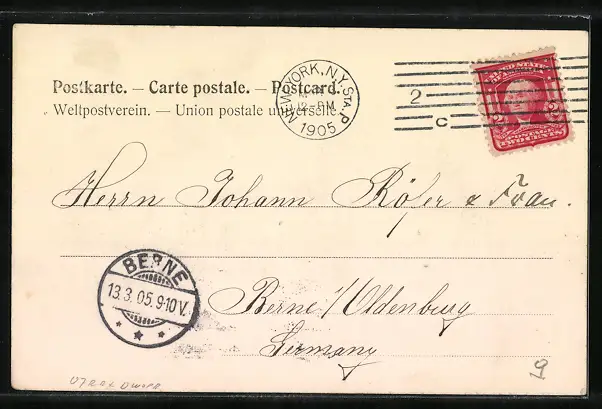 Postkarte. — Carte postale. — Postcard.
Weltpostverein. — Union postale universelle.
NEW YORK, N.Y. STA. P
12- PM
1905
2
C
POSTAGE
TWO CENTS
Herrn Johann Röfer & Frau.
BERNE
13.3.05.9-10V.
Berne/Oldenburg
Germany
9